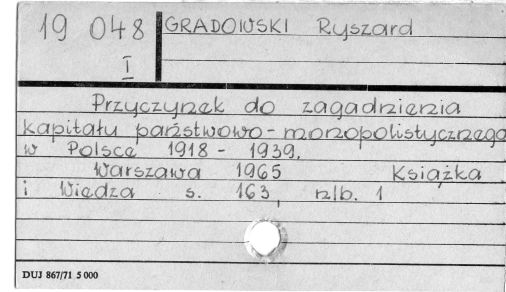 19 048
I
GRADOWSKI Ryszard
Przyczynek do zagadnienia
kapitału państwowo-monopolistycznego
w Polsce 1918 - 1939.
Warszawa 1965 Książka
i Wiedza s. 163, nlb. 1
DUJ 867/71 5 000